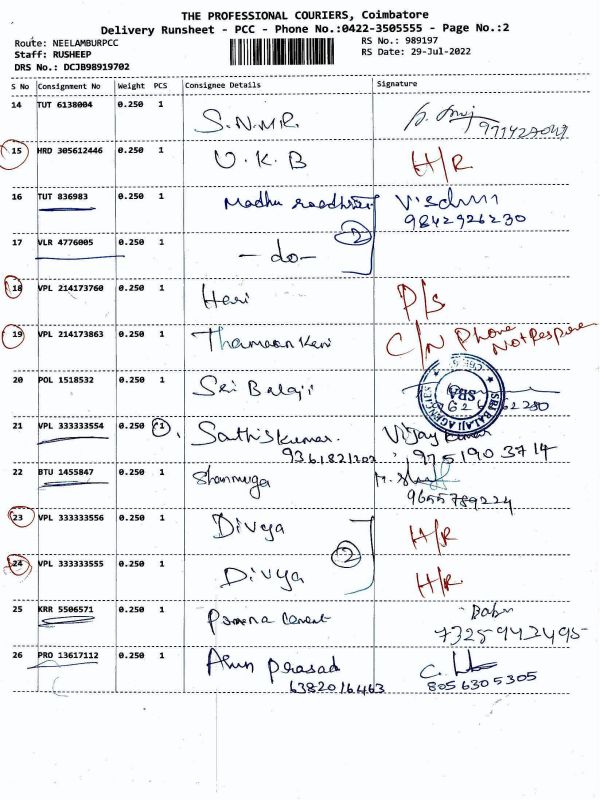 THE PROFESSIONAL COURIERS, Coimbatore
Delivery Runsheet - PCC - Phone No.:0422-3505555 - Page No.:2
Route: NEELAMBURPCC RS No.: 989197
Staff: RUSHEEP RS Date: 29-Jul-2022
DRS No.: DCJB98919702
S No Consignment No Weight PCS Consignee Details Signature
14 TUT 6138004 0.250 1 S.N.M.R.
15 HRD 305612446 0.250 1 U.K.B H/R
16 TUT 836983 0.250 1 Madhu
9842926230
17 VLR 4776005 0.250 1 -do- 2
18 VPL 214173760 0.250 1 Hari P/S
19 VPL 214173863 0.250 1 C/N Phone
Not
20 POL 1518532 0.250 1 Sri Balaji
SRI BALAJI AGENCIES
SBA
21 VPL 333333554 0.250 1 Sathiskumar. Vijay Kumar
9751903714
22 BTU 1455847 0.250 1 Shanmuga
9655789224
23 VPL 333333556 0.250 1 Divya H/R
2
24 VPL 333333555 0.250 1 Divya H/R
25 KRR 5506571 0.250 1 Babu
7325942495
26 PRO 13617112 0.250 1 Arun Prasad
6382016463 8056305305